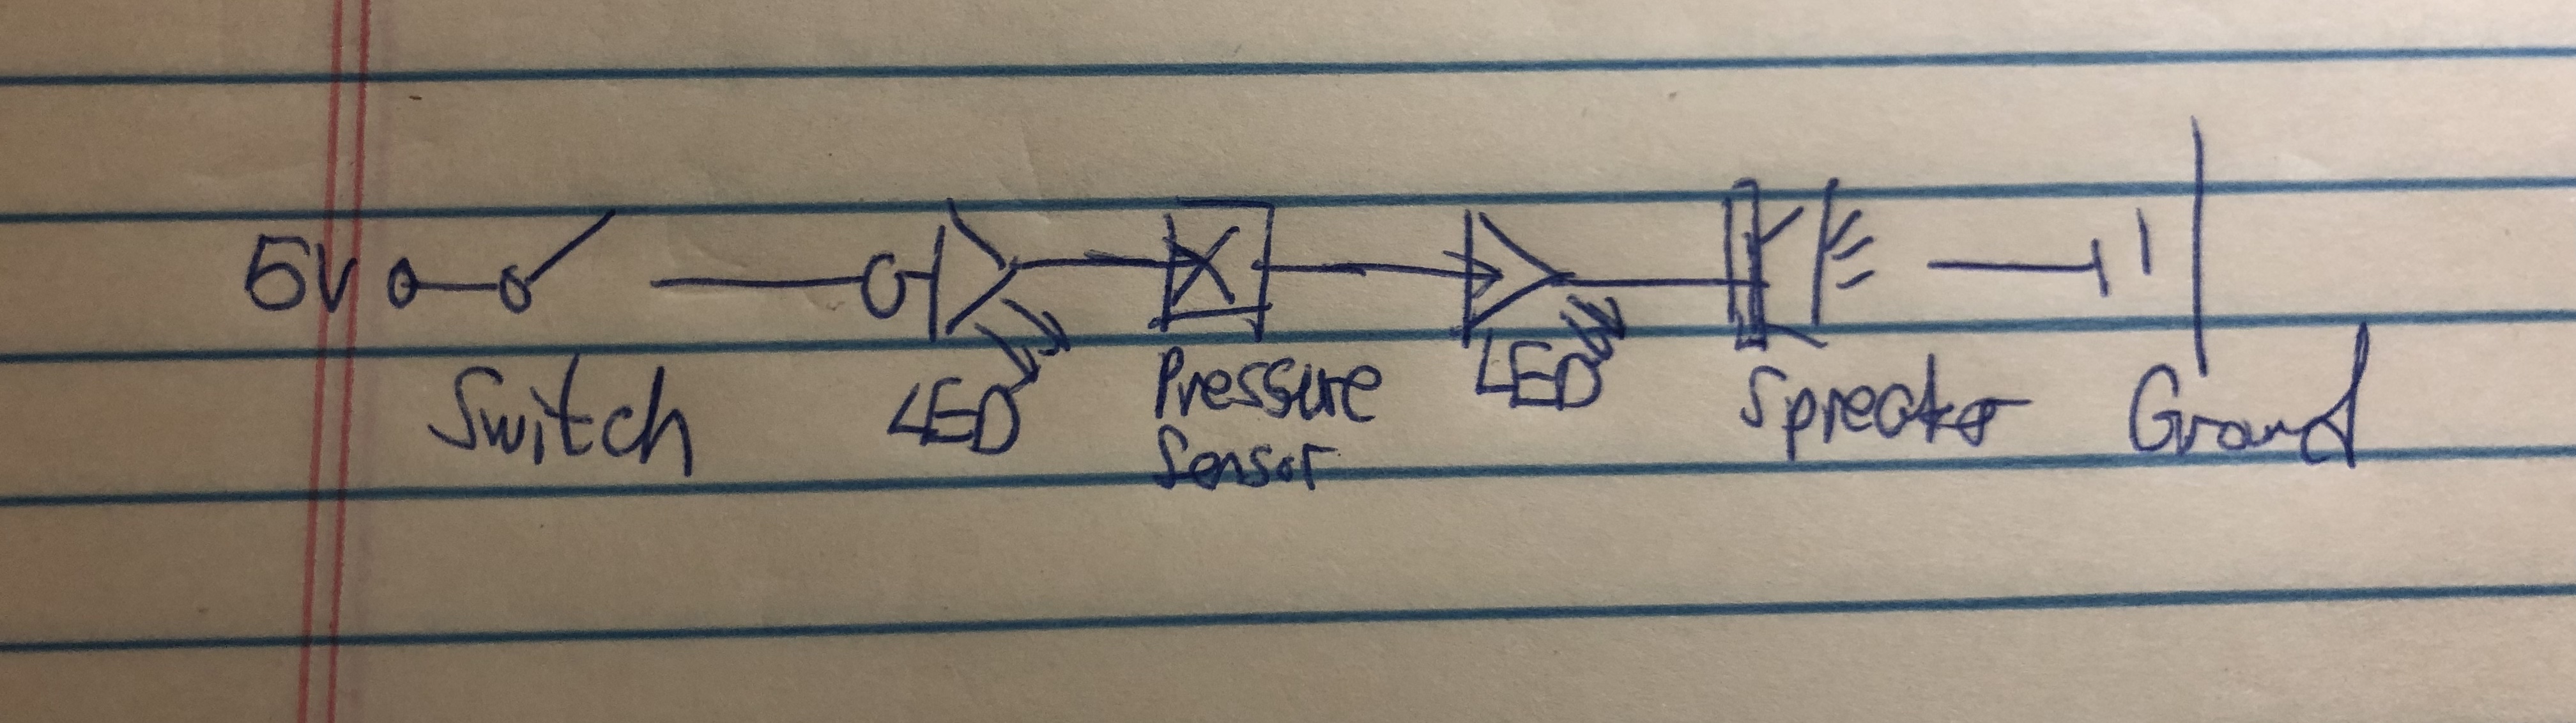 5V
Switch
LED
Pressure
Sensor
LED
Spreaker
Ground